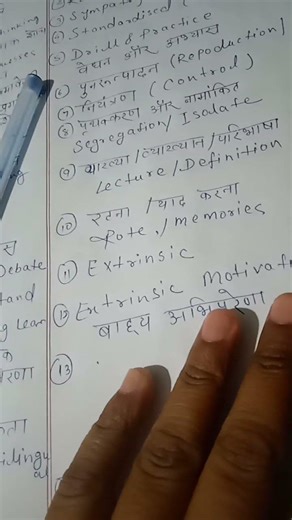 Sympat
④ Standardised (
⑤ Drill & Practice
वैधन और अभ्यास
⑥ पुनरुत्पादन (Repoduction)
⑦ नियंत्रण (Control)
⑧ पृथक्करण और नामांकित
Segregation / Isalate
⑨ व्याख्या / व्याख्यान / परिभाषा
Lecture / Definition
⑩ रटना / याद करना
Rote / memories
⑪ Extrinsic
⑫ Extrinsic Motivat
बाह्य अभिप्रेरणा
⑬
Debate
tand
g lear
रणा
कता
idlingu
al